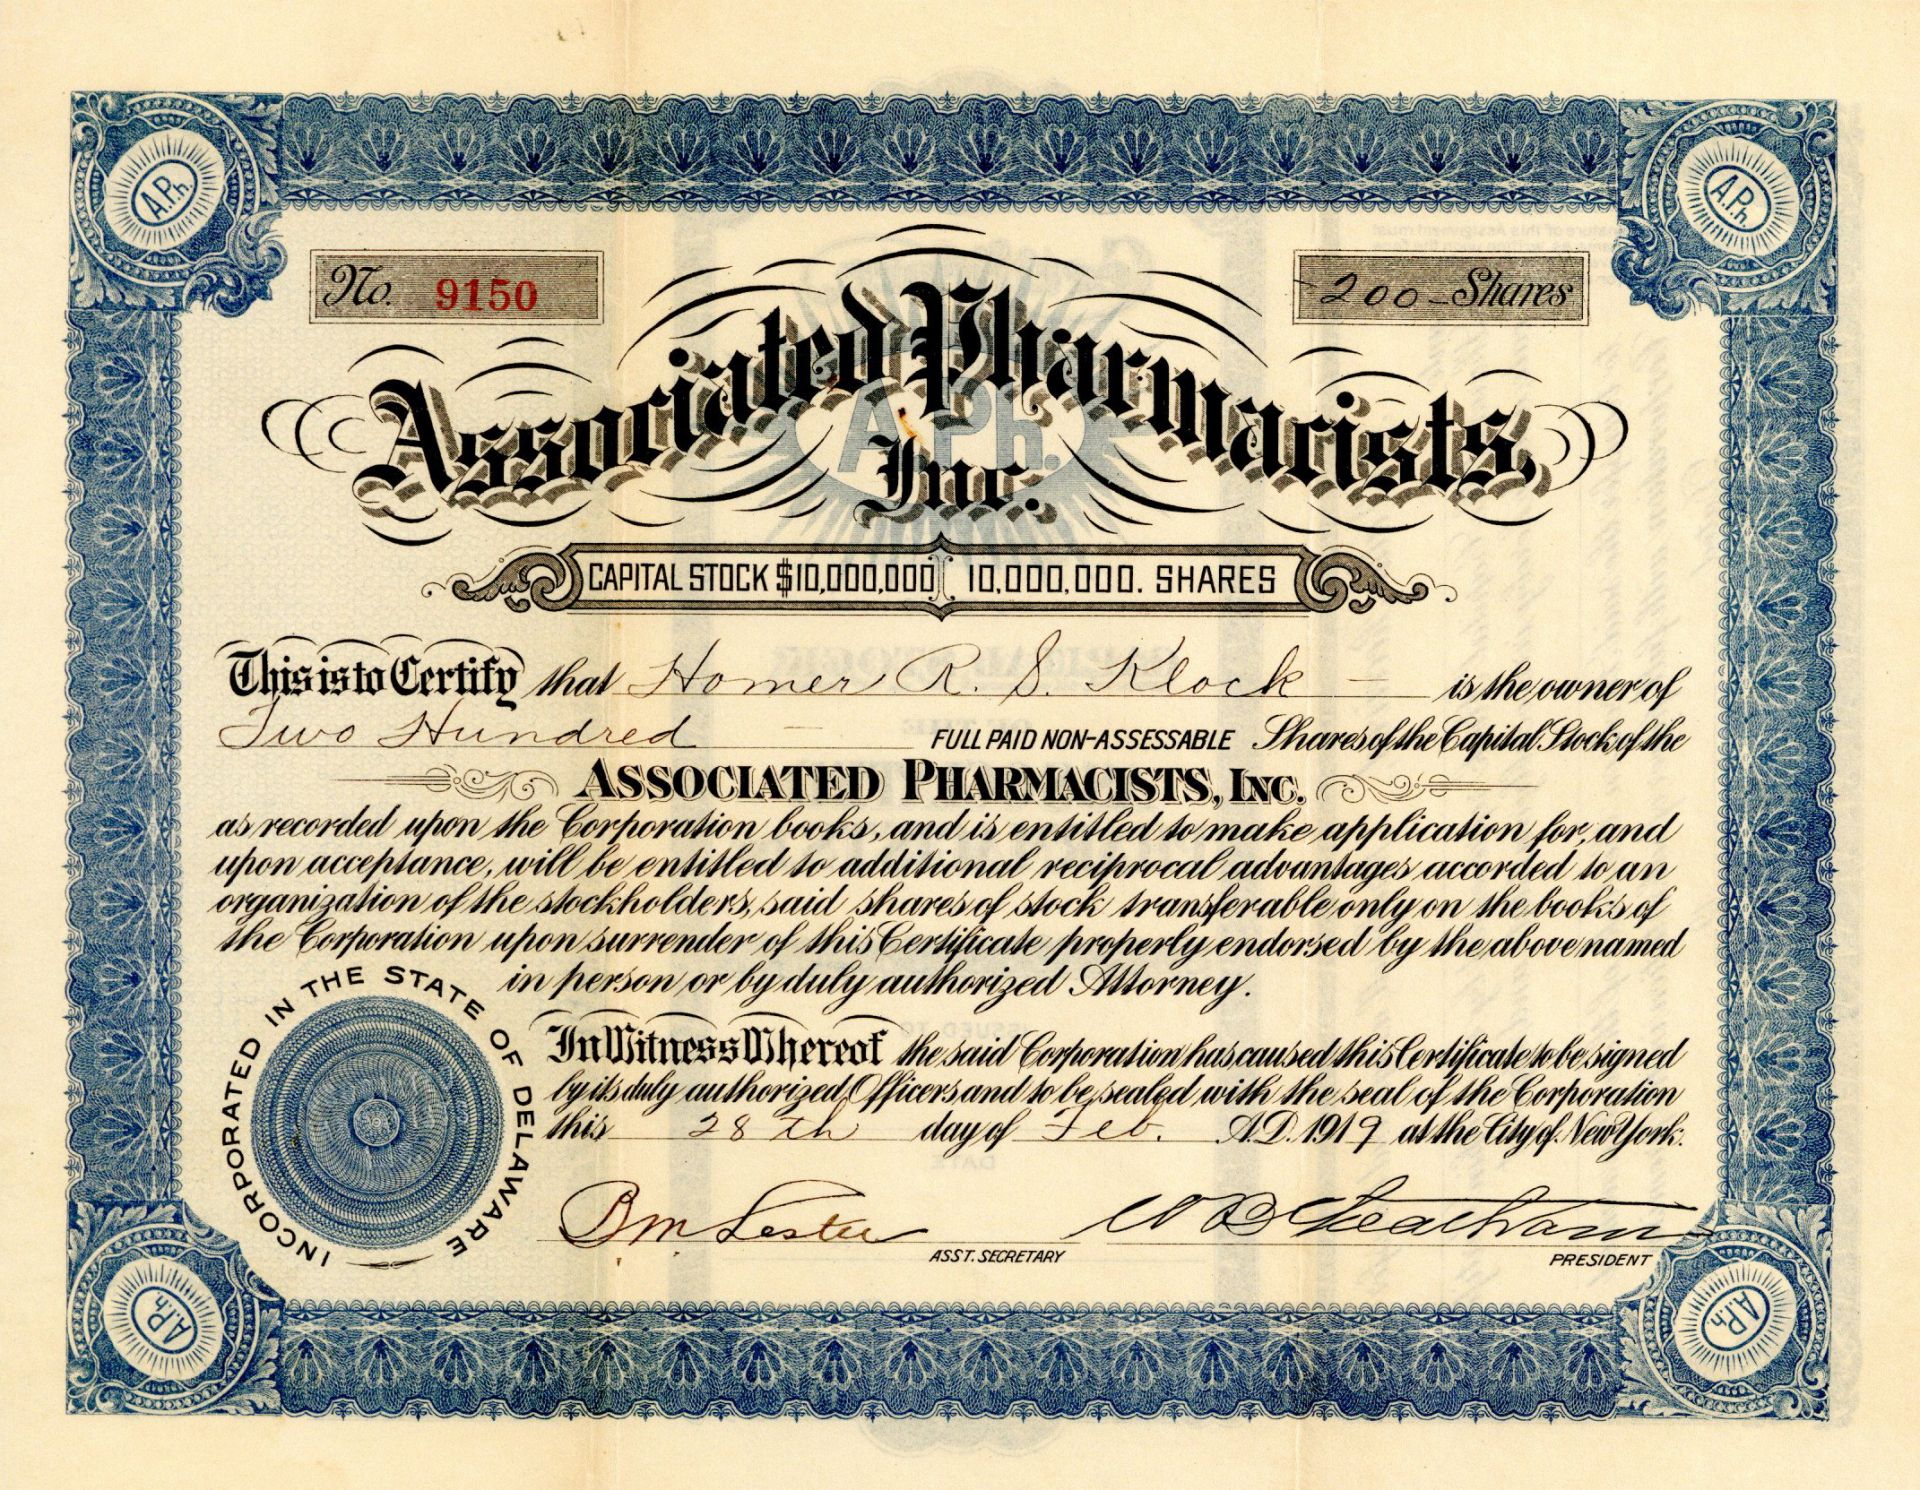 A.Ph.
A.Ph.
No. 9150
200 Shares
Associated Pharmacists,
A.Ph.
Inc.
CAPITAL STOCK $10,000,000 10,000,000. SHARES
This is to Certify that Homer R. S. Klock is the owner of
Two Hundred FULL PAID NON-ASSESSABLE Shares of the Capital Stock of the
ASSOCIATED PHARMACISTS, INC.
as recorded upon the Corporation books, and is entitled to make application for, and
upon acceptance, will be entitled to additional reciprocal advantages accorded to an
organization of the stockholders, said shares of stock transferable only on the books of
the Corporation upon surrender of this Certificate properly endorsed by the above named
in person or by duly authorized Attorney.
INCORPORATED IN THE STATE OF DELAWARE
In Witness Whereof the said Corporation has caused this Certificate to be signed
by its duly authorized Officers and to be sealed with the seal of the Corporation
this 28th day of Feb. A.D. 1919 at the City of New York.
B M Lester
ASST. SECRETARY
W D Cheatham
PRESIDENT
A.Ph.
A.Ph.